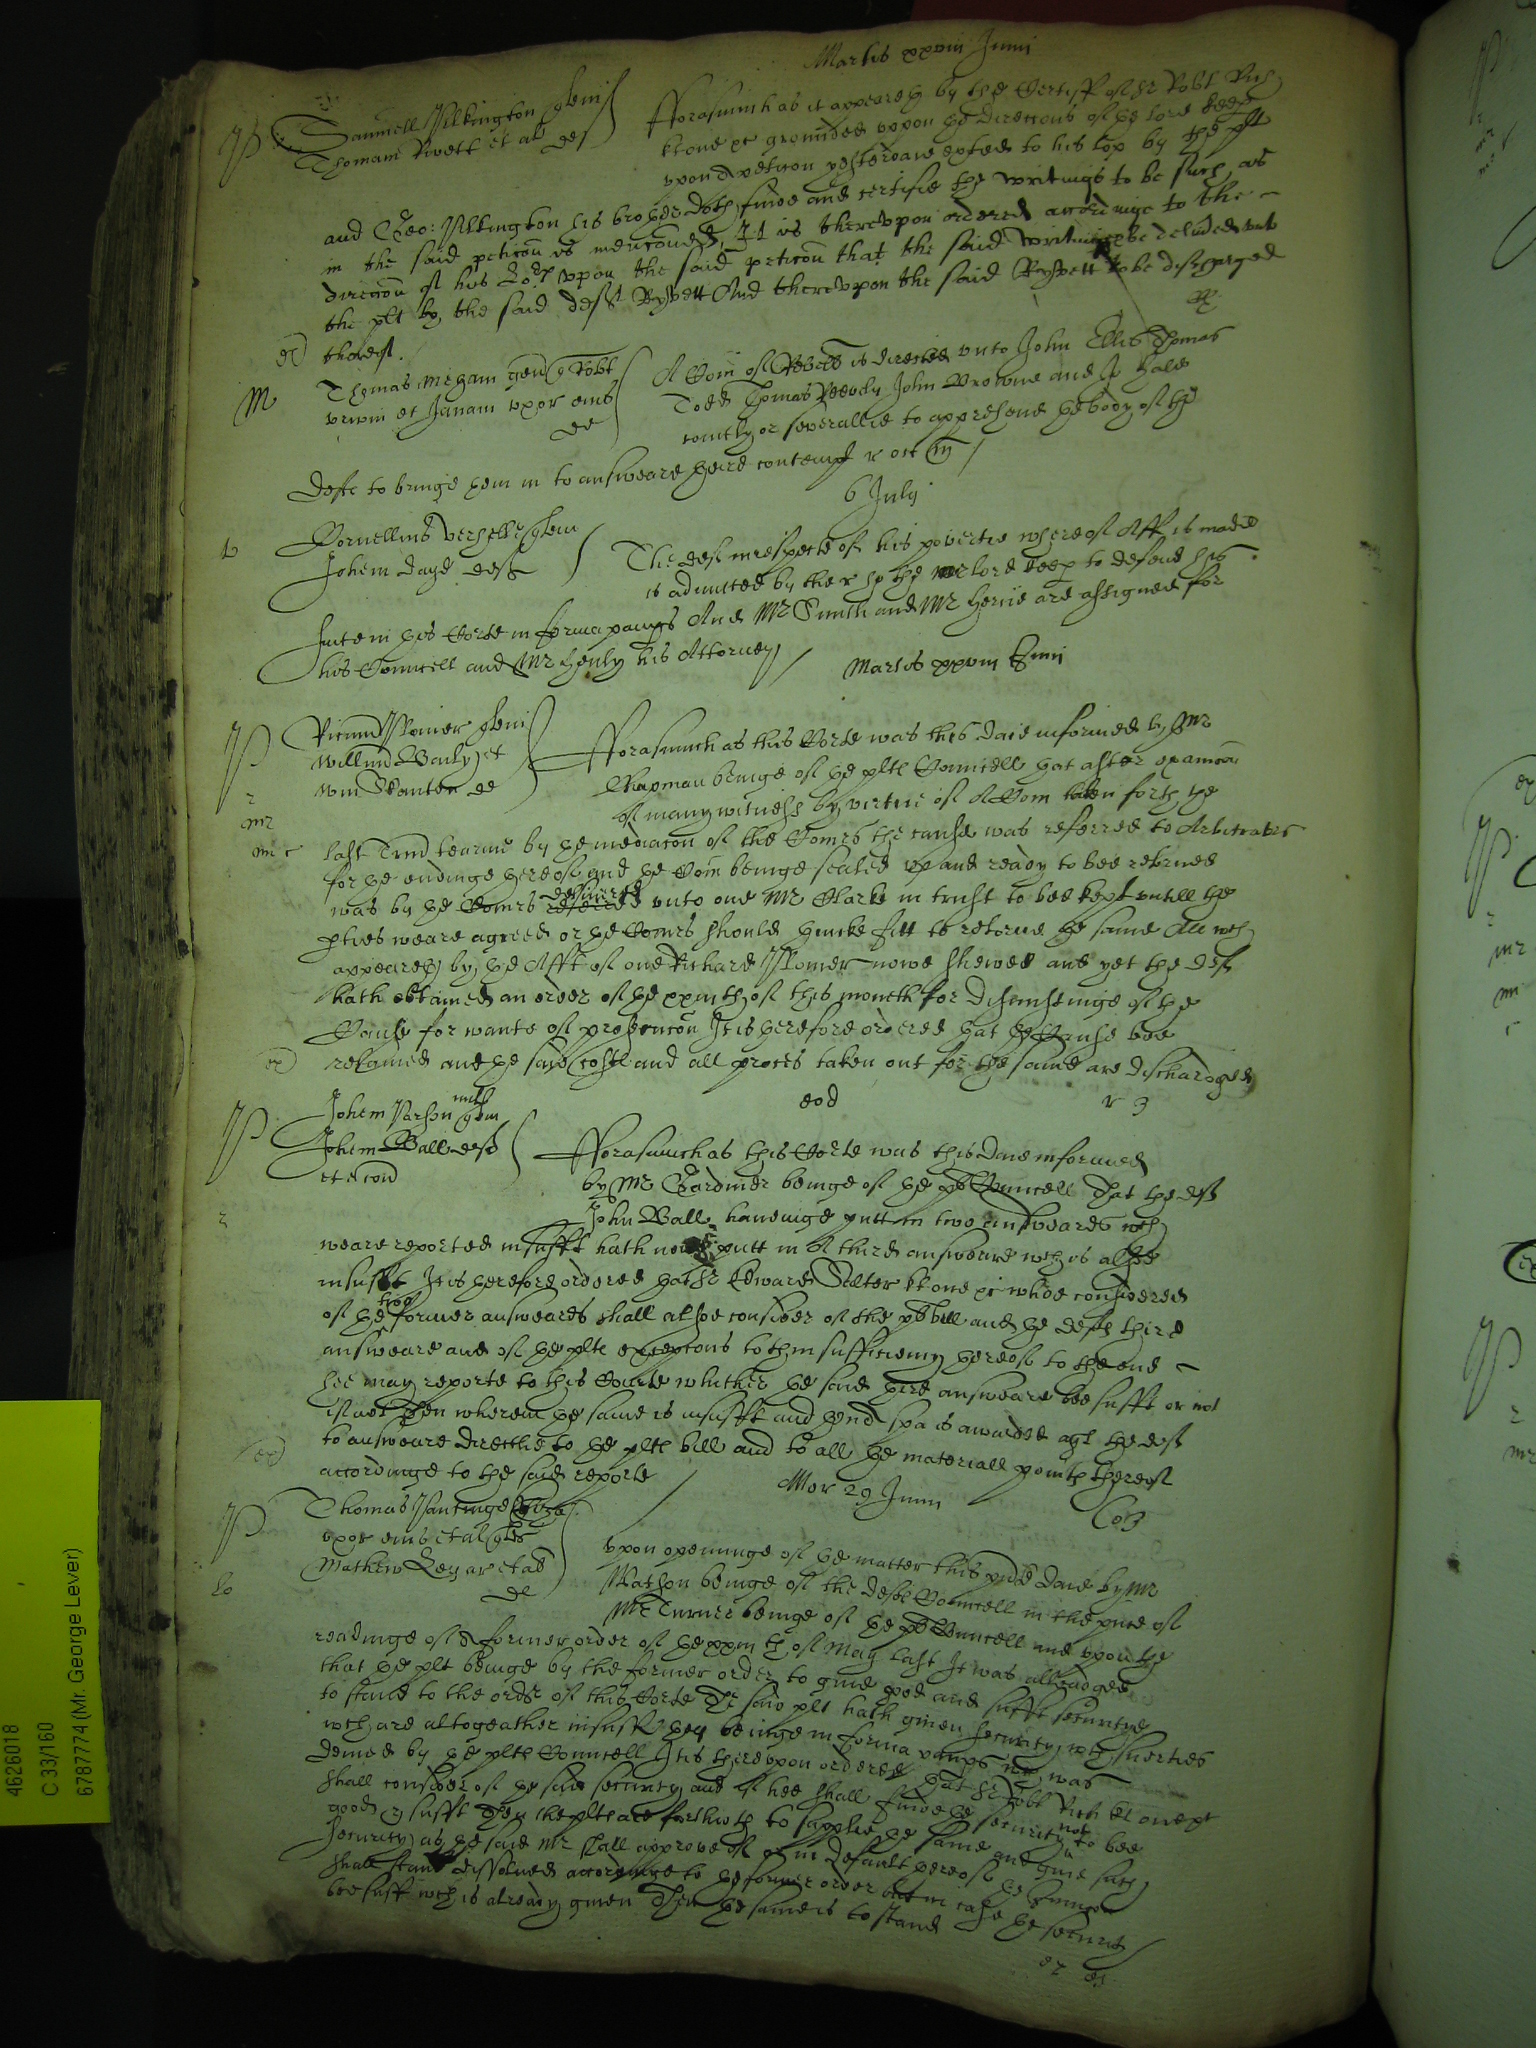 Martis xxviii Junii
P
Samuell Pilkington plent
Thomam Rivett et al def
Fforasmuch as it appeareth by the Certiff of Sr Robt Rich
kt one &c grounded uppon the direcons of the lord keep
upon a peticon yesterdaie exhibited to his Lop by the plt
and Geo: Pilkington his brother doth finde and certifie the writings to be such as
in the said peticon is menconed, It is thereupon ordered accordinge to the
direcon of his Lop upon the said peticon that the said writings be delivered unto
the plt by the said deft Ryvett And thereupon the said Ryvett to be discharged
thereof.
M
Thomas Megam gen Robt
urwin et Janam uxor eius
de
A Com of Rebell is directed unto John Ellis Thomas
Todd Thomas John Browne and Jo Hale
iointly or severallie to apprehend the body of the
defte to bringe them in to answeare their contempt r oct m
6 July
Cornellius plent
Johem daye deft
The deft in respecte of his povertie whereof Aff is made
is admitted by the r ho the lord keep to defend his
suite in this Corte in forma paupis And Mr Smith and Mr Hervie are assigned for
his Councell and Mr Henly his Attorney
Martis xxviii Junii
P
Ricum Plomer plent
Willm Bayly et
Wm Stanton de
Fforasmuch as this Corte was this daie informed by Mr
Chapman beinge of the plts Councell that after examacon
of many witness by vertue of A Com taken forth the
last Trind tearme by the mediacon of the Comrs the cause was referred to Arbitrators
for the endinge thereof and the Com beinge sealed up and ready to bee retorned
was by the Comrs delivered unto one Mr Clarke in trust to bee kept untill the
pties weare agreed or the Comrs should thincke fitt to retorne the same All wch
appeareth by the Afft of one Richard Plomer nowe shewed and yet the deft
hath obtained an order of the of this moneth for dismissinge of the
Cause for wante of prosecucon It is therefore ordered that the Cause bee
retained and the said Costs and all proces taken out for the same are discharged
eod
r 3
P
Johem Parson mil plent
Johem Ball deft
et econ
Fforasmuch as this Corte was this daie informed
by Mr Gardiner beinge of the plts Councell That the deft
John Ball haveinge putt in two answeares wch
weare reported insuffit hath nowe putt in A third answeare wch is alsoe
insuffit It is therefore ordered that Sr Edward Salter kt one &c whoe considered
of the two former answeares shall alsoe consider of the plts bill and the defts third
answeare and of the plts excepcons to th insufficiency thereof to the end
hee may reporte to this Courte whither the said third answeare bee suffit or not
if not then wherein the same is insuffit and then a spa is awarded agt the deft
to answeare directlie to the plts bill and to all the materiall points thereof
accordinge to the said reporte
Mer 29 Junii
P
Thomas Pantinge
uxor eius et al plts
Mathew et al
de
Upon openinge of the matter this pnte daie by Mr
Watson beinge of the defts Councell in the pnce of
Mr Turner beinge of the plts Councell and upon the
readinge of A former order of the of May last It was alleadged
that the plt beinge by the former order to give good and suffit securitye
to stand to the order of this Corte The said plt hath given security wth suerties
wch are altogeather insuff they beinge in forma paupis wch was
denied by the plts Councell It is thereupon ordered that Sr Robt Rich kt one &c
shall consider of the said security and if hee shall finde the security not to bee
good & suffit Then the plts are forthwth to supplie the same and give such
security as the said Mr shall approve of or in default thereof the Iniuncon
shall stand dissolved accordinge to the former order but in case the security
bee suff wch is already given Then the same is to stand
4626018
C 33/160
6787774 (Mr. George Lever)